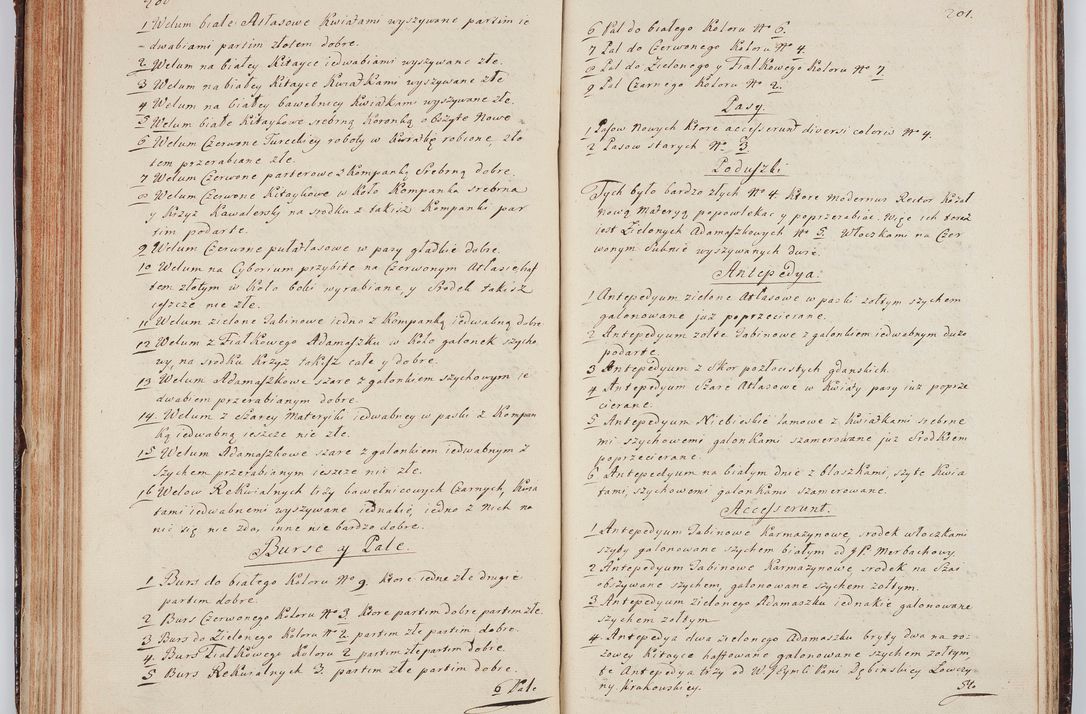 200
1 Welum białe Atłasowe Kwiatami wyszywane partim ie
-dwabiami partim złotem dobre.
2 Welum na białey Kitayce iedwabiami wyszywane złe.
3 Welum na białey Kitayce Kwiatkami wyszywane złe
4 Welum na białey bawełnicy Kwiatkam wyszywane złe.
5 Welum białe Kitaykowe srebrną Koronką obszyte Nowe
6 Welum Czerwone Tureckiey roboty w Kwiatki robione, zło
tem przerabiane złe.
7 Welum Czerwone parterowe z Kompanką Srebrną dobre.
8 Welum Czerwone Kitaykowe w Koło Kompanka srebrna
y Krzyż Kawalerski na srodku z takisz Kompanki par
tim podarte.
9 Welum Czerwone pułatłasowe w pasy gładkie dobre.
10 Welum na Cyborium przybite na Czerwonym Atłasie haf
tem złotym w Koło boki wyrabiane, y Srodek takisz
ieszcze nie złe.
11 Welum zielone Tabinowe iedno z Kompanką iedwabną dobre
12 Welum z Fiałkowego Adamaszku w Koło galonek szycho
wy, na srodku Krzyż takisz całe y dobre.
13 Welum Adamaszkowe szare z galonkiem szychowym ie
dwabiem przerabianym dobre.
14. Welum z szarey Materyiki iedwabney w paski z Kompan
ką iedwabną ieszcze nie złe.
15 Welum Adamaszkowe szare z galonkiem iedwabnym z
szychem przerabianym ieszcze nie złe.
16 Welow Rekwialnych trzy bawełnicowych Czarnych, Kwia
tami iedwabnemi wyszywane iednakie, iedno z Nich no
nic się nie zda, inne nie bardzo dobre.
Burse y Pale.
1 Burs do białego Koloru No 9. Ktore iedne złe drugie
partim dobre.
2 Burs Czerwonego Koloru No 3. Ktore partim dobre partim złe.
3 Burs do Zielonego Koloru No 2 partim złe partim dobre.
4. Burs Fiałkowego Koloru 2 partim złe partim dobre.
5 Burs Rekwialnych 3. partim złe partim dobre.
6 Pale
201.
6 Pal do białego Koloru No 6.
7 Pal do Czerwonego Koloru No 4.
8 Pal do Zielonego y Fiałkowego Koloru No 7
9 Pal Czarnego Koloru No 2.
Pasy.
1 Pasow Nowych Ktore accesserunt diversi coloris No 4.
2 Pasow starych No 3
Poduszki
Tych było bardzo złych No 4. Ktore modernus Rector Kazał
nową Materyą popowlekac y poprzerabiac. Więc ich teraz
iest Zielonych Adamaszkowych No 5. Włoczkami na Czer
wonym Suknie wyszywanych dwie.
Antepedya.
1 Antepedyum zielone Atłasowe w paski żołtym szychem
galonowane już poprzecierane.
2 Antepedyum żołte Tabinowe z galonkiem iedwabnym dużo
podarte.
3 Antepedyum z Skor pozłocistych gdanskich.
4 Antepedyum Szare Atłasowe w Kwiaty pasy iuż poprze
cierane.
5 Antepedyum Niebieskie lamowe z Kwiatkami srebrne
mi szychowemi galonkami szamerowane już Srodkiem
poprzecierane.
6 Antepedyum na białym dnie z blaszkami, szyte Kwia
tami, szychowemi galonkami szamerowane.
Accesserunt.
1 Antepedyum Tabinowe Karmazynowe, srodek włoczkami
szyty galonowane szychem białym od JP. Merbachowy.
2 Antepedyum Tabinowe Karmazynowe srodek na Szas
obszywane szychem, galonowane szychem żołtym.
3 Antepedyum zielonego Adamaszku iednakie galonowane
szychem żołtym
4 Antepedya dwa zielonego Adamaszku bryty dwa na ro-
żowey Kitayce haftowane galonowane szychem żołtym,
te Antepedya trzy od W. Jeymsci Pani Dębinskiey Łowczy-
ny Krakowskiey.
5to